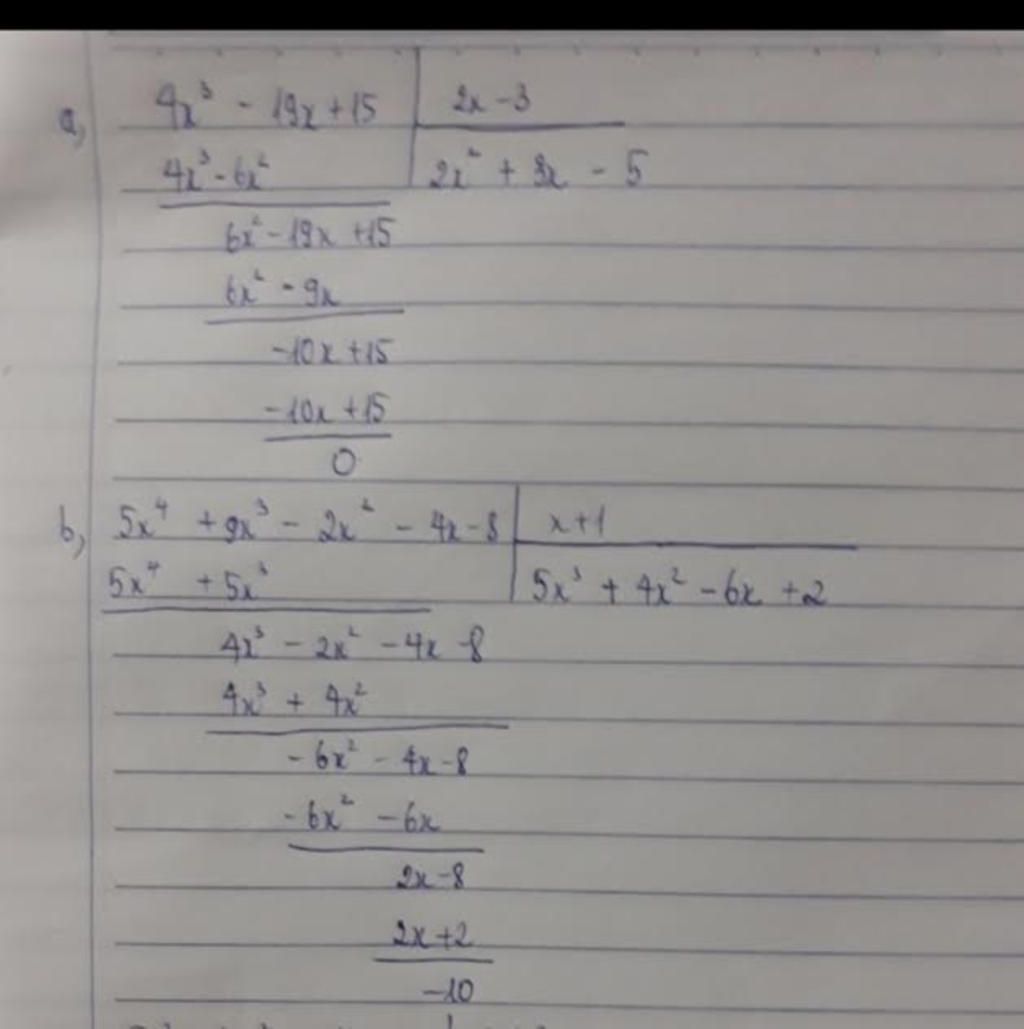 a, 4x³ - 19x + 15 | 2x - 3
4x³ - 6x² | 2x² + 3x - 5
6x² - 19x + 15
6x² - 9x
-10x + 15
-10x + 15
0
b, 5x⁴ + 9x³ - 2x² - 4x - 8 | x + 1
5x⁴ + 5x³ | 5x³ + 4x² - 6x + 2
4x³ - 2x² - 4x - 8
4x³ + 4x²
- 6x² - 4x - 8
- 6x² - 6x
2x - 8
2x + 2
-10